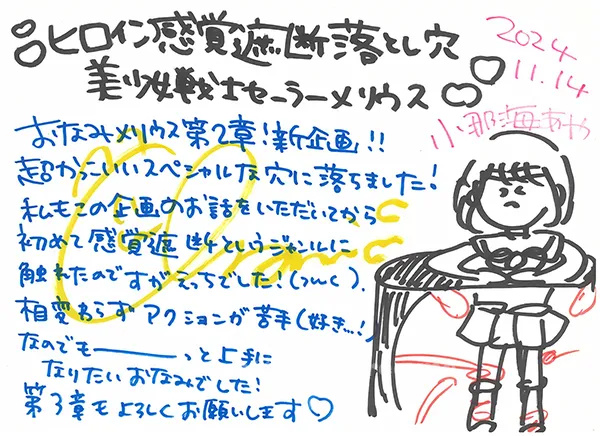 ヒロイン感覚遮断落とし穴
美少女戦士セーラーメリウス
2024
11.14
小那海あや
おなみメリウス第2章!新企画!!
超かっこいいスペシャルな穴に落ちました!
私もこの企画のお話をいただいてから
初めて感覚遮断というジャンルに
触れたのですがえっちでした!(つんく).
相変わらずアクションが苦手(好き…!)
なのでも――っと上手に
なりたいおなみでした!
第3章もよろしくお願いします♡